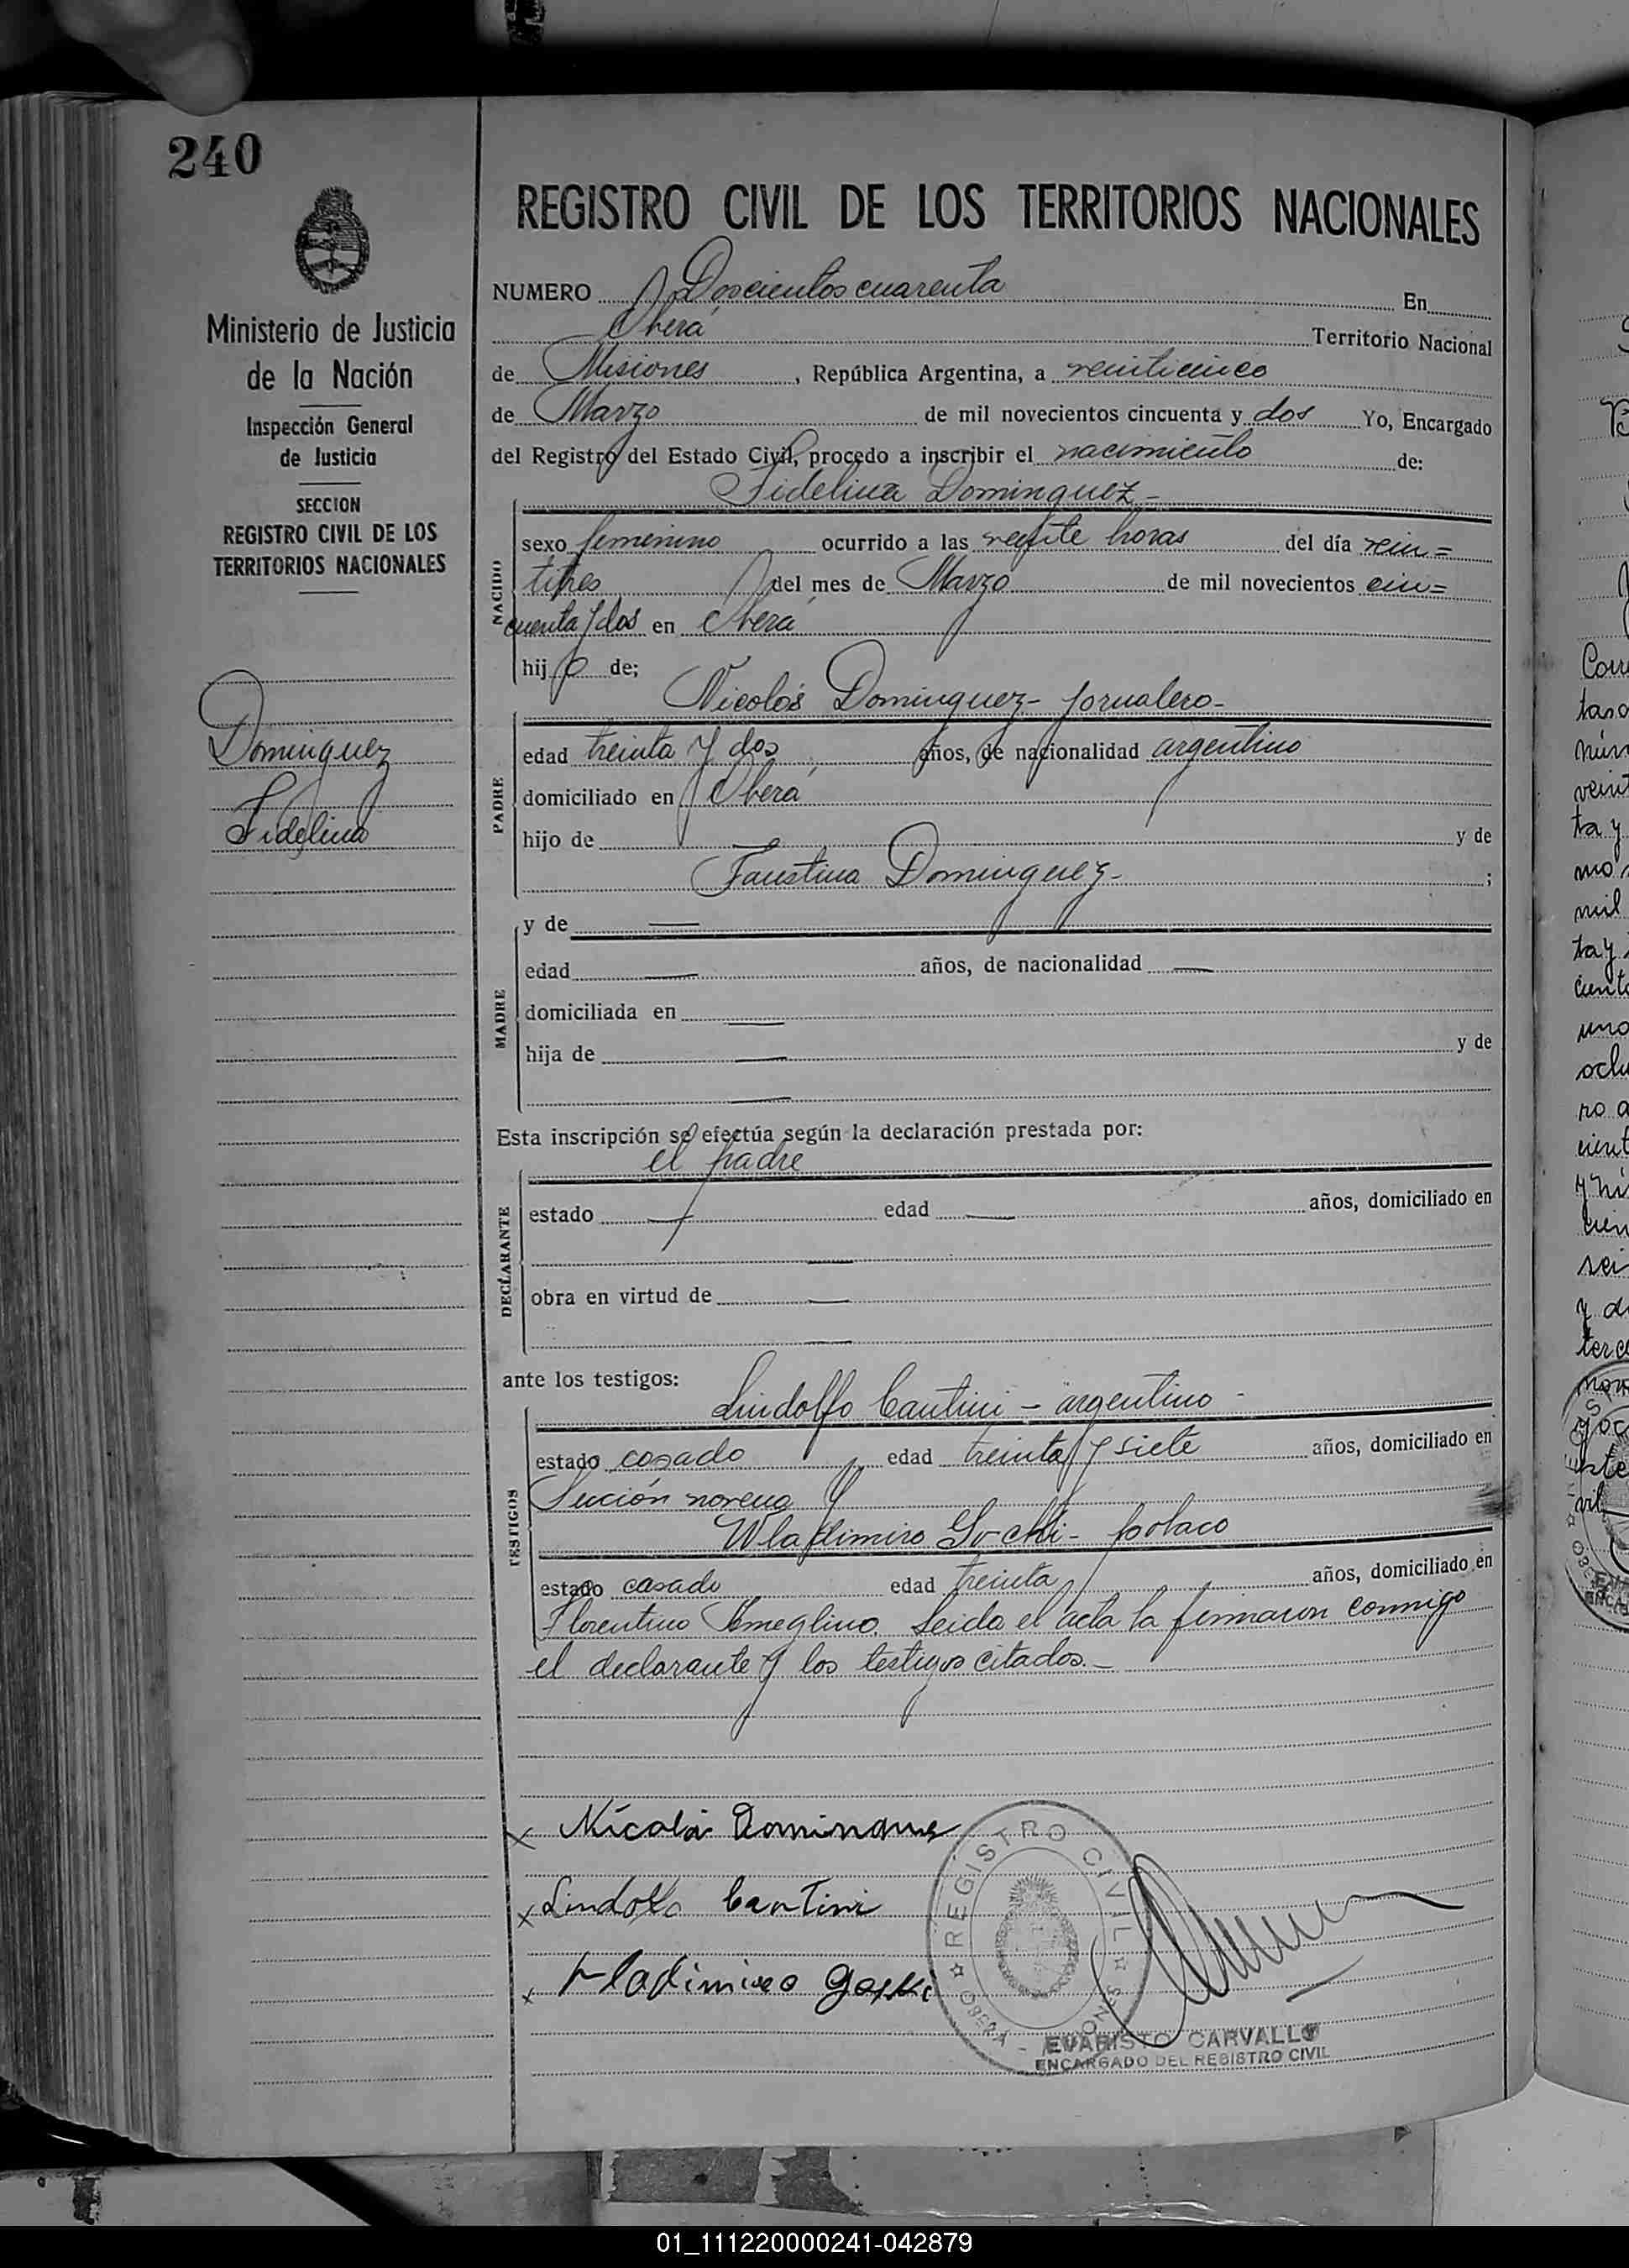 240
Ministerio de Justicia
de la Nación
Inspección General
de Justicia
SECCION
REGISTRO CIVIL DE LOS
TERRITORIOS NACIONALES
Dominguez
Fidelina
REGISTRO CIVIL DE LOS TERRITORIOS NACIONALES
NUMERO Doscientos cuarenta En
Oberá Territorio Nacional
de Misiones, República Argentina, a veinticinco
de Marzo de mil novecientos cincuenta y dos Yo, Encargado
del Registro del Estado Civil, procedo a inscribir el nacimiento de:
Fidelina Dominguez-
NACIDO
sexo femenino ocurrido a las veinte horas del día vein=
titres del mes de Marzo de mil novecientos cin=
cuenta y dos en Oberá
hij o de;
Nicolás Dominguez- jornalero-
PADRE
edad treinta y dos años, de nacionalidad argentino
domiciliado en Oberá
hijo de — y de
Faustina Dominguez- ;
MADRE
y de —
edad — años, de nacionalidad —
domiciliada en —
hija de — y de
—
Esta inscripción se efectúa según la declaración prestada por:
el padre
DECLARANTE
estado — edad — años, domiciliado en
—
obra en virtud de —
—
ante los testigos:
Lindolfo Cantini - argentino -
TESTIGOS
estado casado edad treinta y siete años, domiciliado en
Sección novena y
Wladimiro - polaco
estado casado edad treinta años, domiciliado en
Florentino Ameglino. Leida el acta la firmaron conmigo
el declarante y los testigos citados.-
x Nicolá Domingues
x Lindolfo Cantini
x Wladimiro
REGISTRO CIVIL
OBERA - MISIONES
EVARISTO CARVALLO
ENCARGADO DEL REGISTRO CIVIL
01_111220000241-042879